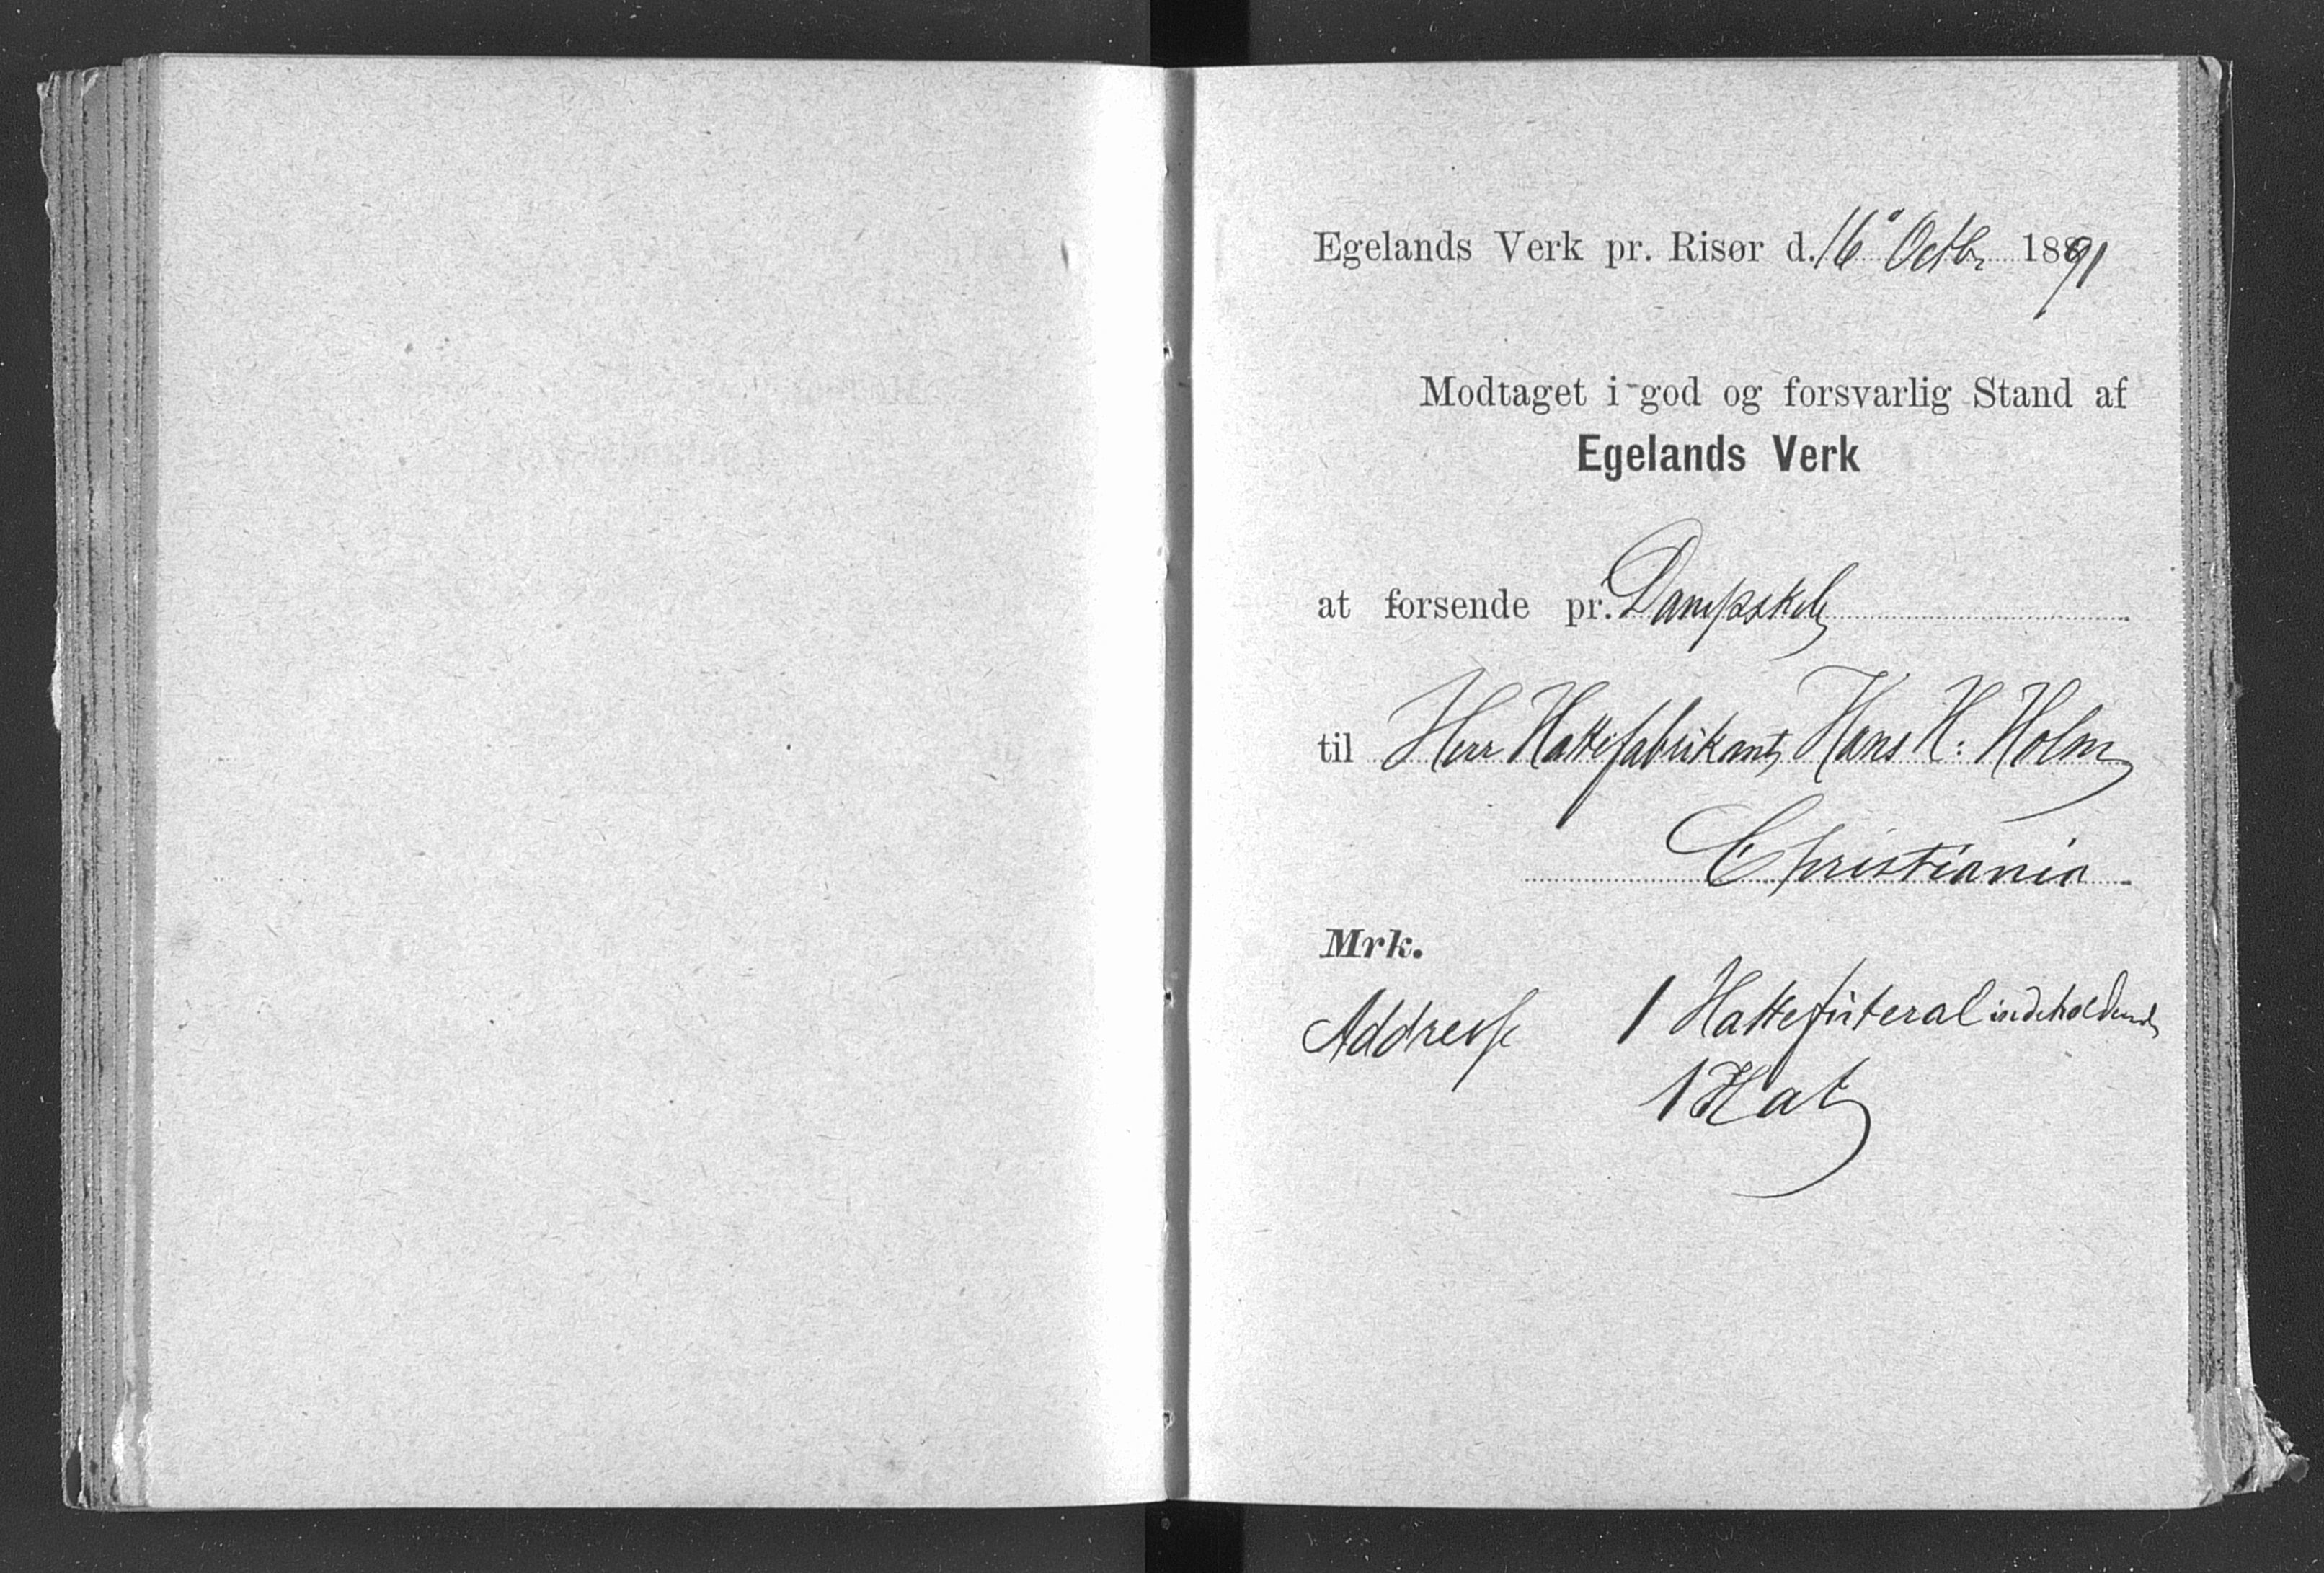 Egelands Verk pr. Risør d. 16 Octbr 1891
Modtaget i god og forsvarlig Stand af
Egelands Verk
at forsende pr. Dampskib
til Herr Hattefabrikant Hans H: Holm
Christiania
Mrk.
Addresse 1 Hattefuteral indeholdende
1 Hat